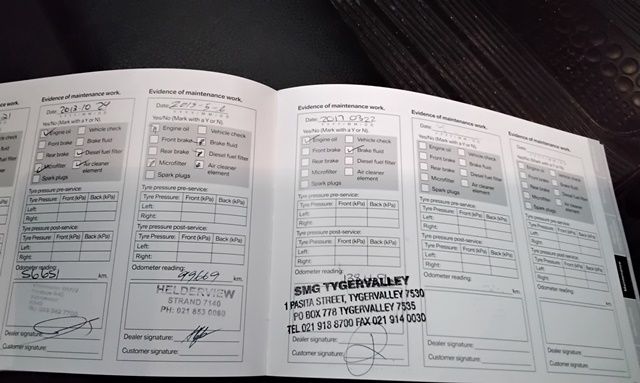 Evidence of maintenance work.
Date: 2013-10-24
Yes/No (Mark with a Y or N).
Engine oil Vehicle check
Front brake Brake fluid
Rear brake Diesel fuel filter
Microfilter Air cleaner element
Spark plugs
Tyre pressure pre-service:
Tyre Pressure: Front (kPa) Back (kPa)
Left:
Right:
Tyre pressure post-service:
Tyre Pressure: Front (kPa) Back (kPa)
Left:
Right:
Odometer reading:
56651 km.
Dealer signature:
Customer signature:
Evidence of maintenance work.
Date:
Yes/No (Mark with a Y or N).
Engine oil Vehicle check
Front brake Brake fluid
Rear brake Diesel fuel filter
Microfilter Air cleaner element
Spark plugs
Tyre pressure pre-service:
Tyre Pressure: Front (kPa) Back (kPa)
Left:
Right:
Tyre pressure post-service:
Tyre Pressure: Front (kPa) Back (kPa)
Left:
Right:
Odometer reading:
99669 km.
HELDERVIEW
STRAND 7140
PH: 021 853 0060
Dealer signature:
Customer signature:
Evidence of maintenance work.
Date: 2017 03 22
Yes/No (Mark with a Y or N).
Engine oil Vehicle check
Front brake Brake fluid
Rear brake Diesel fuel filter
Microfilter Air cleaner element
Spark plugs
Tyre pressure pre-service:
Tyre Pressure: Front (kPa) Back (kPa)
Left:
Right:
Tyre pressure post-service:
Tyre Pressure: Front (kPa) Back (kPa)
Left:
Right:
Odometer reading:
SMG TYGERVALLEY
1 PASITA STREET, TYGERVALLEY 7530
PO BOX 778 TYGERVALLEY 7535
TEL 021 918 8700 FAX 021 914 0030
Dealer signature:
Customer signature:
Evidence of maintenance work.
Date:
Yes/No (Mark with a Y or N).
Engine oil Vehicle check
Front brake Brake fluid
Rear brake Diesel fuel filter
Microfilter Air cleaner element
Spark plugs
Tyre pressure pre-service:
Tyre Pressure: Front (kPa) Back (kPa)
Left:
Right:
Tyre pressure post-service:
Tyre Pressure: Front (kPa) Back (kPa)
Left:
Right:
Odometer reading:
km.
Dealer signature:
Customer signature:
Evidence of maintenance work.
Date:
Yes/No (Mark with a Y or N).
Engine oil Vehicle check
Front brake Brake fluid
Rear brake Diesel fuel filter
Microfilter Air cleaner element
Spark plugs
Tyre pressure pre-service:
Tyre Pressure: Front (kPa) Back (kPa)
Left:
Right:
Tyre pressure post-service:
Tyre Pressure: Front (kPa) Back (kPa)
Left:
Right:
Odometer reading:
km.
Dealer signature:
Customer signature: